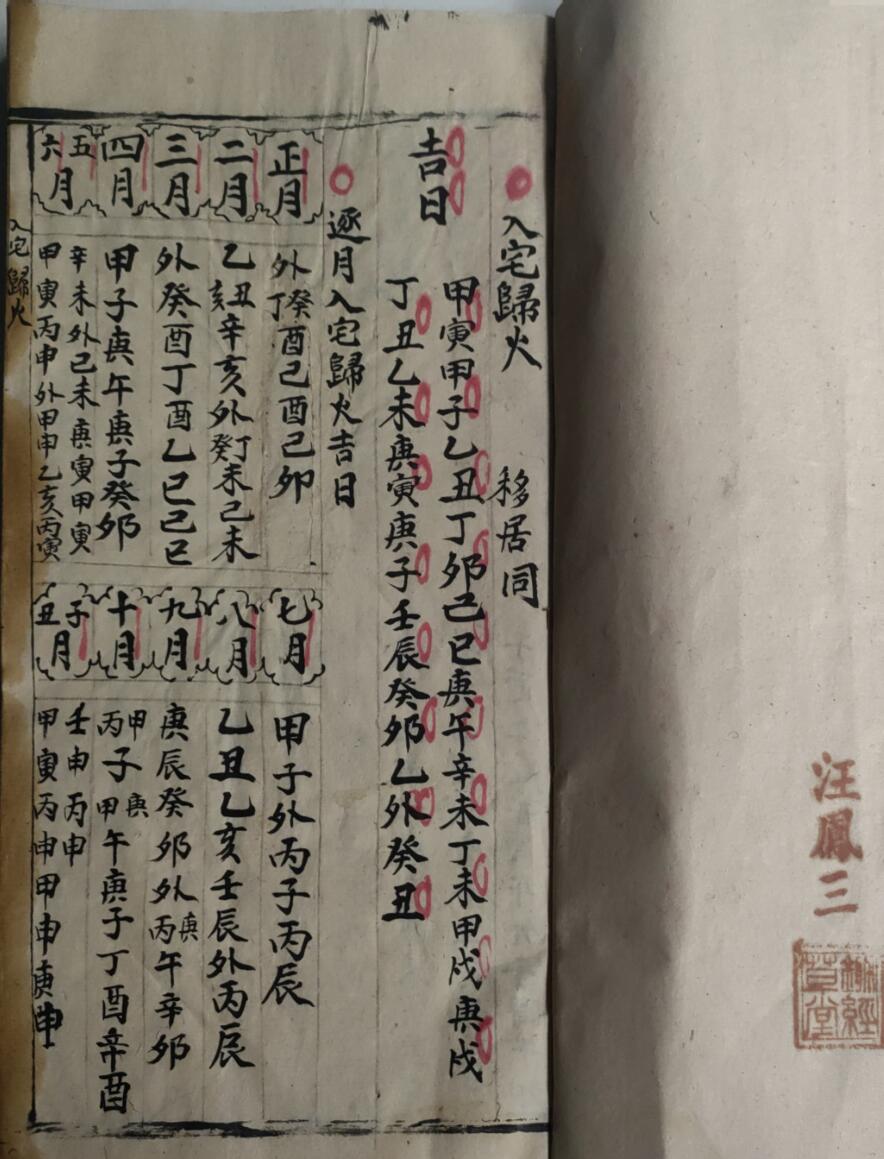 汪鳳三
入宅歸火 移居同
吉日
甲寅甲子乙丑丁卯己巳庚午辛未丁未甲戌庚戌
丁丑乙未庚寅庚子壬辰癸卯乙外癸丑
逐月入宅歸火吉日
正月
外癸丁酉己酉己卯
二月
乙丑亥辛亥外丁癸未己未
三月
外癸酉丁酉乙巳己巳
四月
甲子庚午庚子癸卯
五六月
辛未外己未庚寅甲寅
甲寅丙申外甲申乙亥丙寅
七月
甲子外丙子丙辰
八月
乙丑乙亥壬辰外丙辰
九月
庚辰癸卯外庚丙午辛卯
十月
甲丙子庚甲午庚子丁酉辛酉
子丑月
壬申丙申
甲寅丙申甲申庚申
入宅歸火